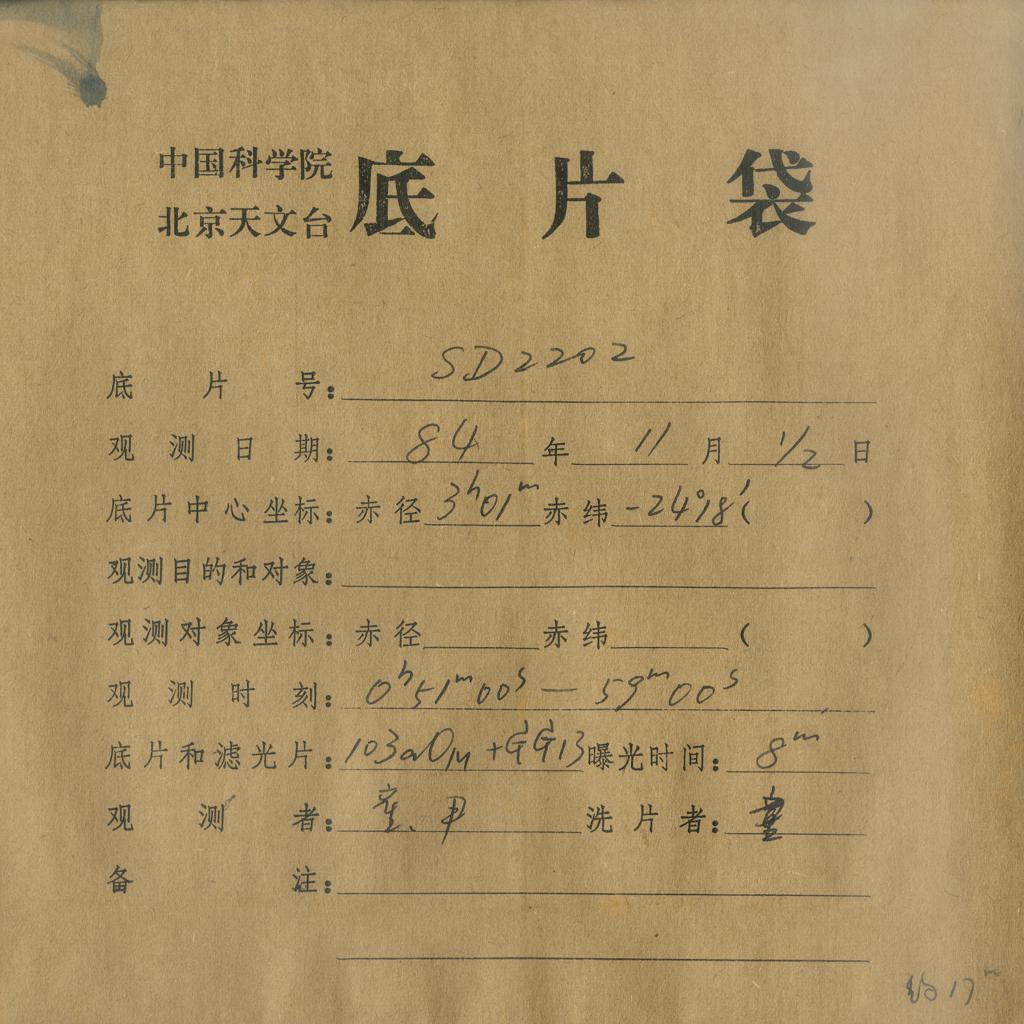 中国科学院
北京天文台
底片袋
底片号：SD2202
观测日期：84年11月1/2日
底片中心坐标：赤径3ʰ01ᵐ赤纬-24°18′(　　)
观测目的和对象：
观测对象坐标：赤径　　赤纬　　(　　)
观测时刻：0ʰ51ᵐ00ˢ — 59ᵐ00ˢ
底片和滤光片：103aO + GG13 曝光时间：8ᵐ
观测者：　　洗片者：
备注：
约17ᵐ